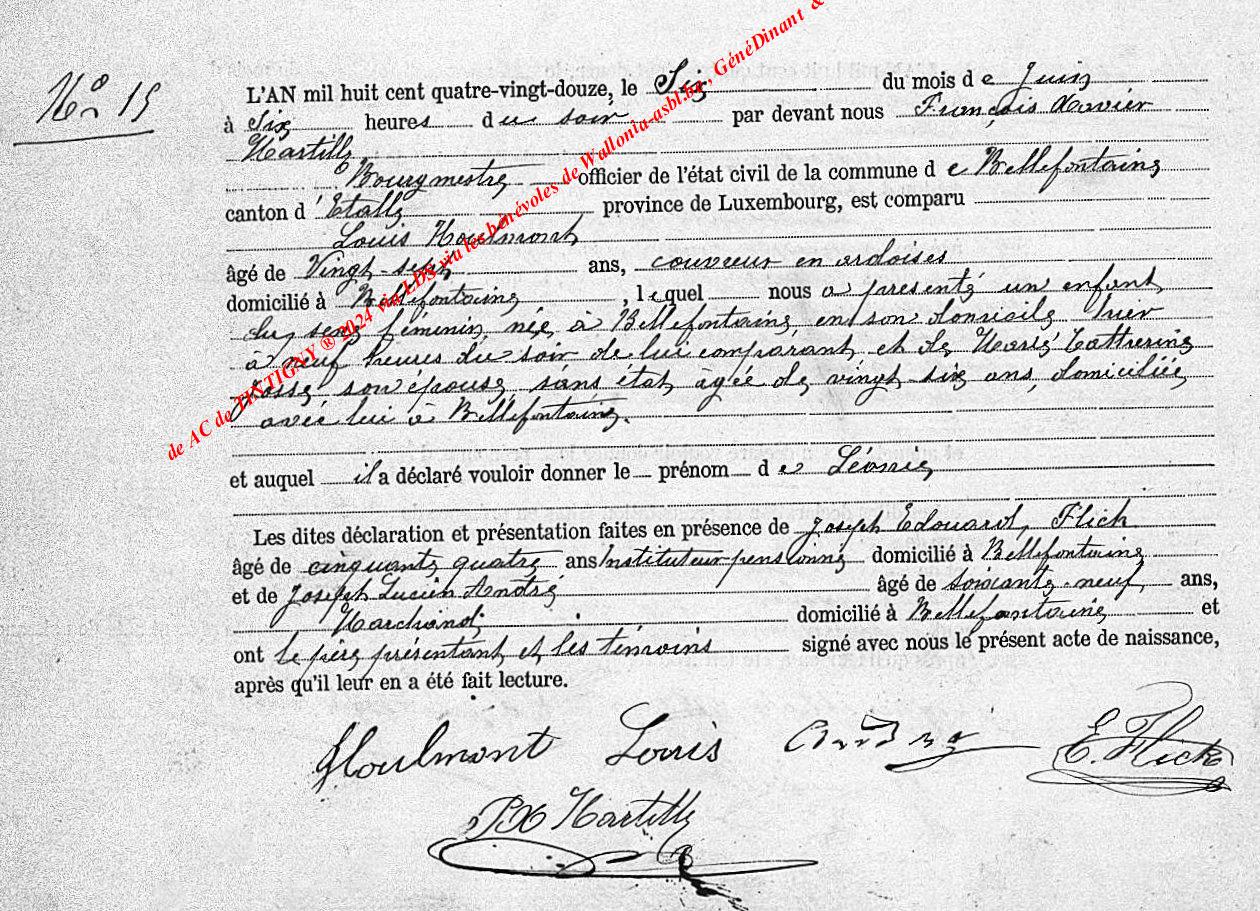 de AC de TINTIGNY ® 2024 via LDS via les bénévoles de Wallonia-asbl.be, GénéDinant &
No 15
L'AN mil huit cent quatre-vingt-douze, le Six du mois de Juin
à Six heures du soir par devant nous François Xavier
Hartilly
Bourgmestre officier de l'état civil de la commune de Bellefontaine
canton d'Etalle province de Luxembourg, est comparu
Louis Houlmont
âgé de Vingt-sept ans, couvreur en ardoises
domicilié à Bellefontaine, lequel nous a présenté un enfant
du sexe féminin, née à Bellefontaine, en son domicile, hier
à neuf heures du soir de lui comparant et de Marie Catherine
son épouse, sans état, âgée de vingt six ans, domiciliée
avec lui à Bellefontaine.
et auquel il a déclaré vouloir donner le prénom de Léonie
Les dites déclaration et présentation faites en présence de Joseph Edouard, Flick
âgé de cinquante quatre ans Instituteur pensionné domicilié à Bellefontaine
et de Joseph Lucien André âgé de soixante-neuf ans,
Marchand domicilié à Bellefontaine et
ont le père présentant et les témoins signé avec nous le présent acte de naissance,
après qu'il leur en a été fait lecture.
Houlmont Louis André E. Flick
FX Hartilly